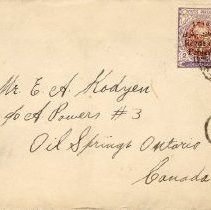 Mr. E A Kodyen
℅ A Powers #3
Oil Springs Ontario
Canada